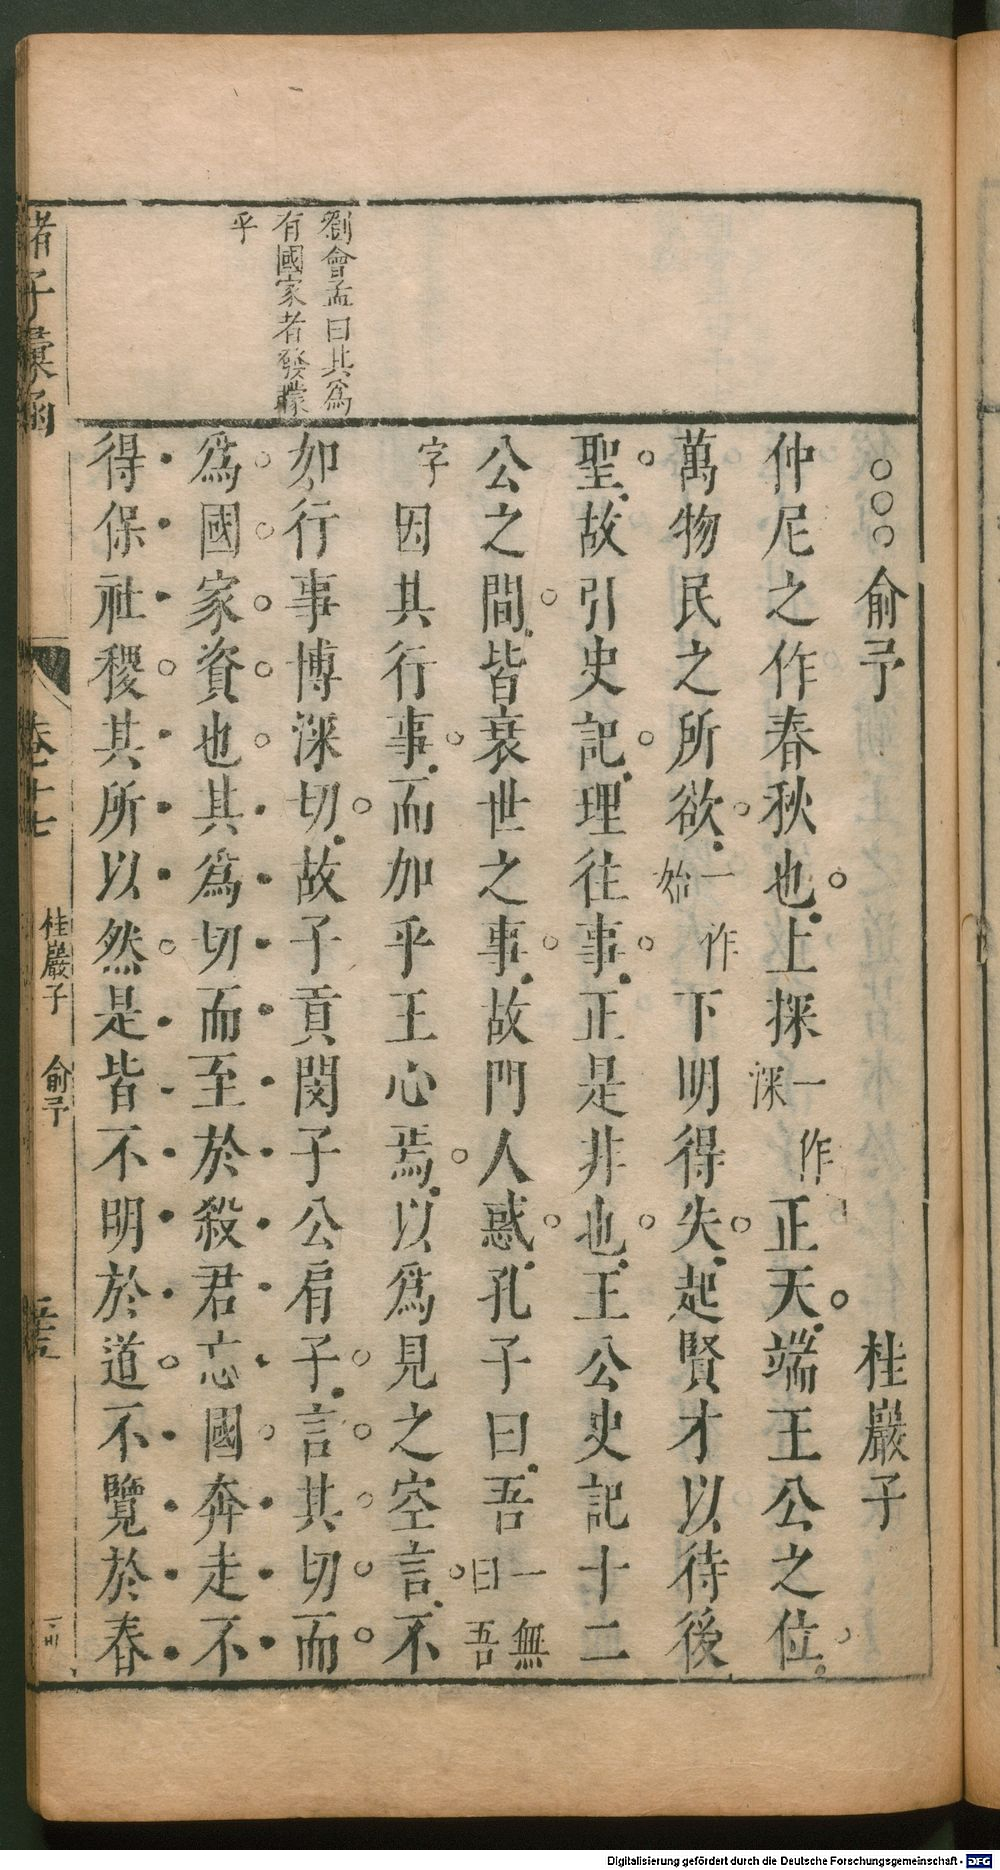 劉會孟曰其爲
有國家者發矇
乎
俞予
桂巖子
仲尼之作春秋也上探一作深正天端王公之位
萬物民之所欲一作始下明得失起賢才以待後
聖故引史記理往事正是非也王公史記十二
公之間皆衰世之事故門人惑孔子曰吾一無曰吾
字因其行事而加乎王心焉以爲見之空言不
如行事博深切故子貢閔子公肩子言其切而
爲國家資也其爲切而至於殺君忘國奔走不
得保社稷其所以然是皆不明於道不覽於春
諸子彙函
卷十七
桂巖子
俞予
Digitalisierung gefördert durch die Deutsche Forschungsgemeinschaft - DFG